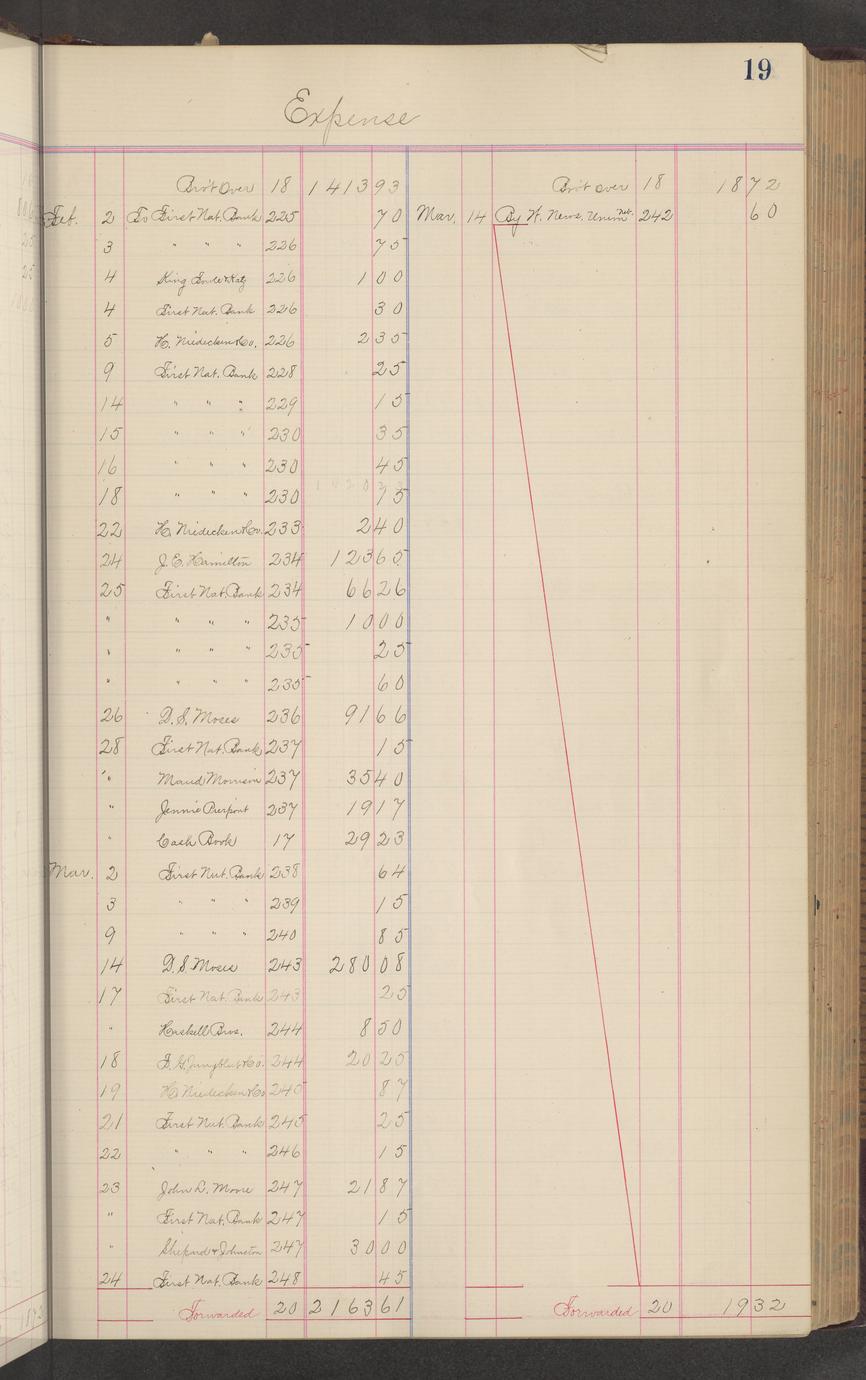 19
Expense
Bro't Over 18 1413 93
Feb. 2 To First Nat. Bank 225 70
3 " " " 226 75
4 King 226 1 00
4 First Nat. Bank 226 30
5 H. Niedecken & Co. 226 2 35
9 First Nat. Bank 228 25
14 " " " 229 15
15 " " " 230 35
16 " " " 230 45
18 " " " 230 75
22 H. Niedecken & Co. 233 2 40
24 J. E. Hamilton 234 123 65
25 First Nat. Bank 234 66 26
" " " " 235 10 00
" " " " 235 25
" " " " 235 60
26 D. S. Moses 236 91 66
28 First Nat. Bank 237 15
" Maud Morrison 237 35 40
" Jennie Pierpont 237 19 17
" Cash Book 17 29 23
Mar. 2 First Nat. Bank 238 64
3 " " " 239 15
9 " " " 240 85
14 D. S. Moses 243 280 08
17 First Nat. Bank 243 25
" Haskell Bros. 244 8 50
18 Jungblut & Co. 244 20 25
19 H. Niedecken & Co 245 87
21 First Nat. Bank 245 25
22 " " " 246 15
23 John L. Moore 247 21 87
" First Nat. Bank 247 15
" Shepard & Johnston 247 30 00
24 First Nat. Bank 248 45
Forwarded 20 2163 61
Bro't over 18 18 72
Mar. 14 By News. Union 242 60
Forwarded 20 19 32